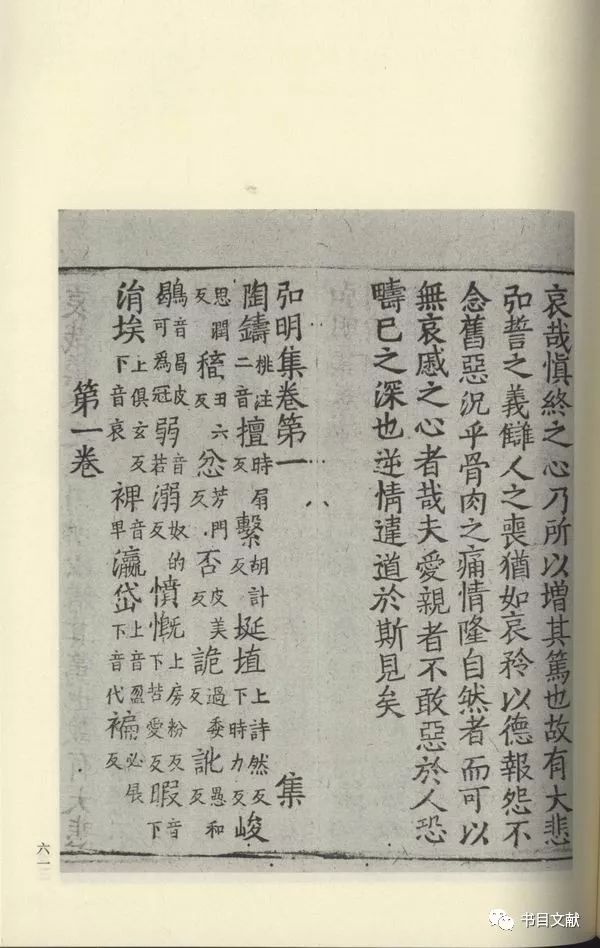 哀哉慎終之心乃所以增其篤也故有大悲
弘誓之義讎人之喪猶如哀矜以德報怨不
念舊惡況乎骨肉之痛情隆自然者而可以
無哀戚之心者哉夫愛親者不敢惡於人恐
疇已之深也逆情違道於斯見矣
弘明集卷第一 集
陶鑄桃注二音擅時扇反繫胡計反埏埴上詩然反下時力反峻
思潤反稸丑六反忿芳門反否皮美反詭過委反訛愚和反
鶡音曷皮可為冠弱音若溺奴的反憤慨上房粉反下苦愛反暇音下
涓埃上俱玄反下音哀裨音卑瀛岱上音盈下音代褊必展反
第一卷
六一三
书目文献